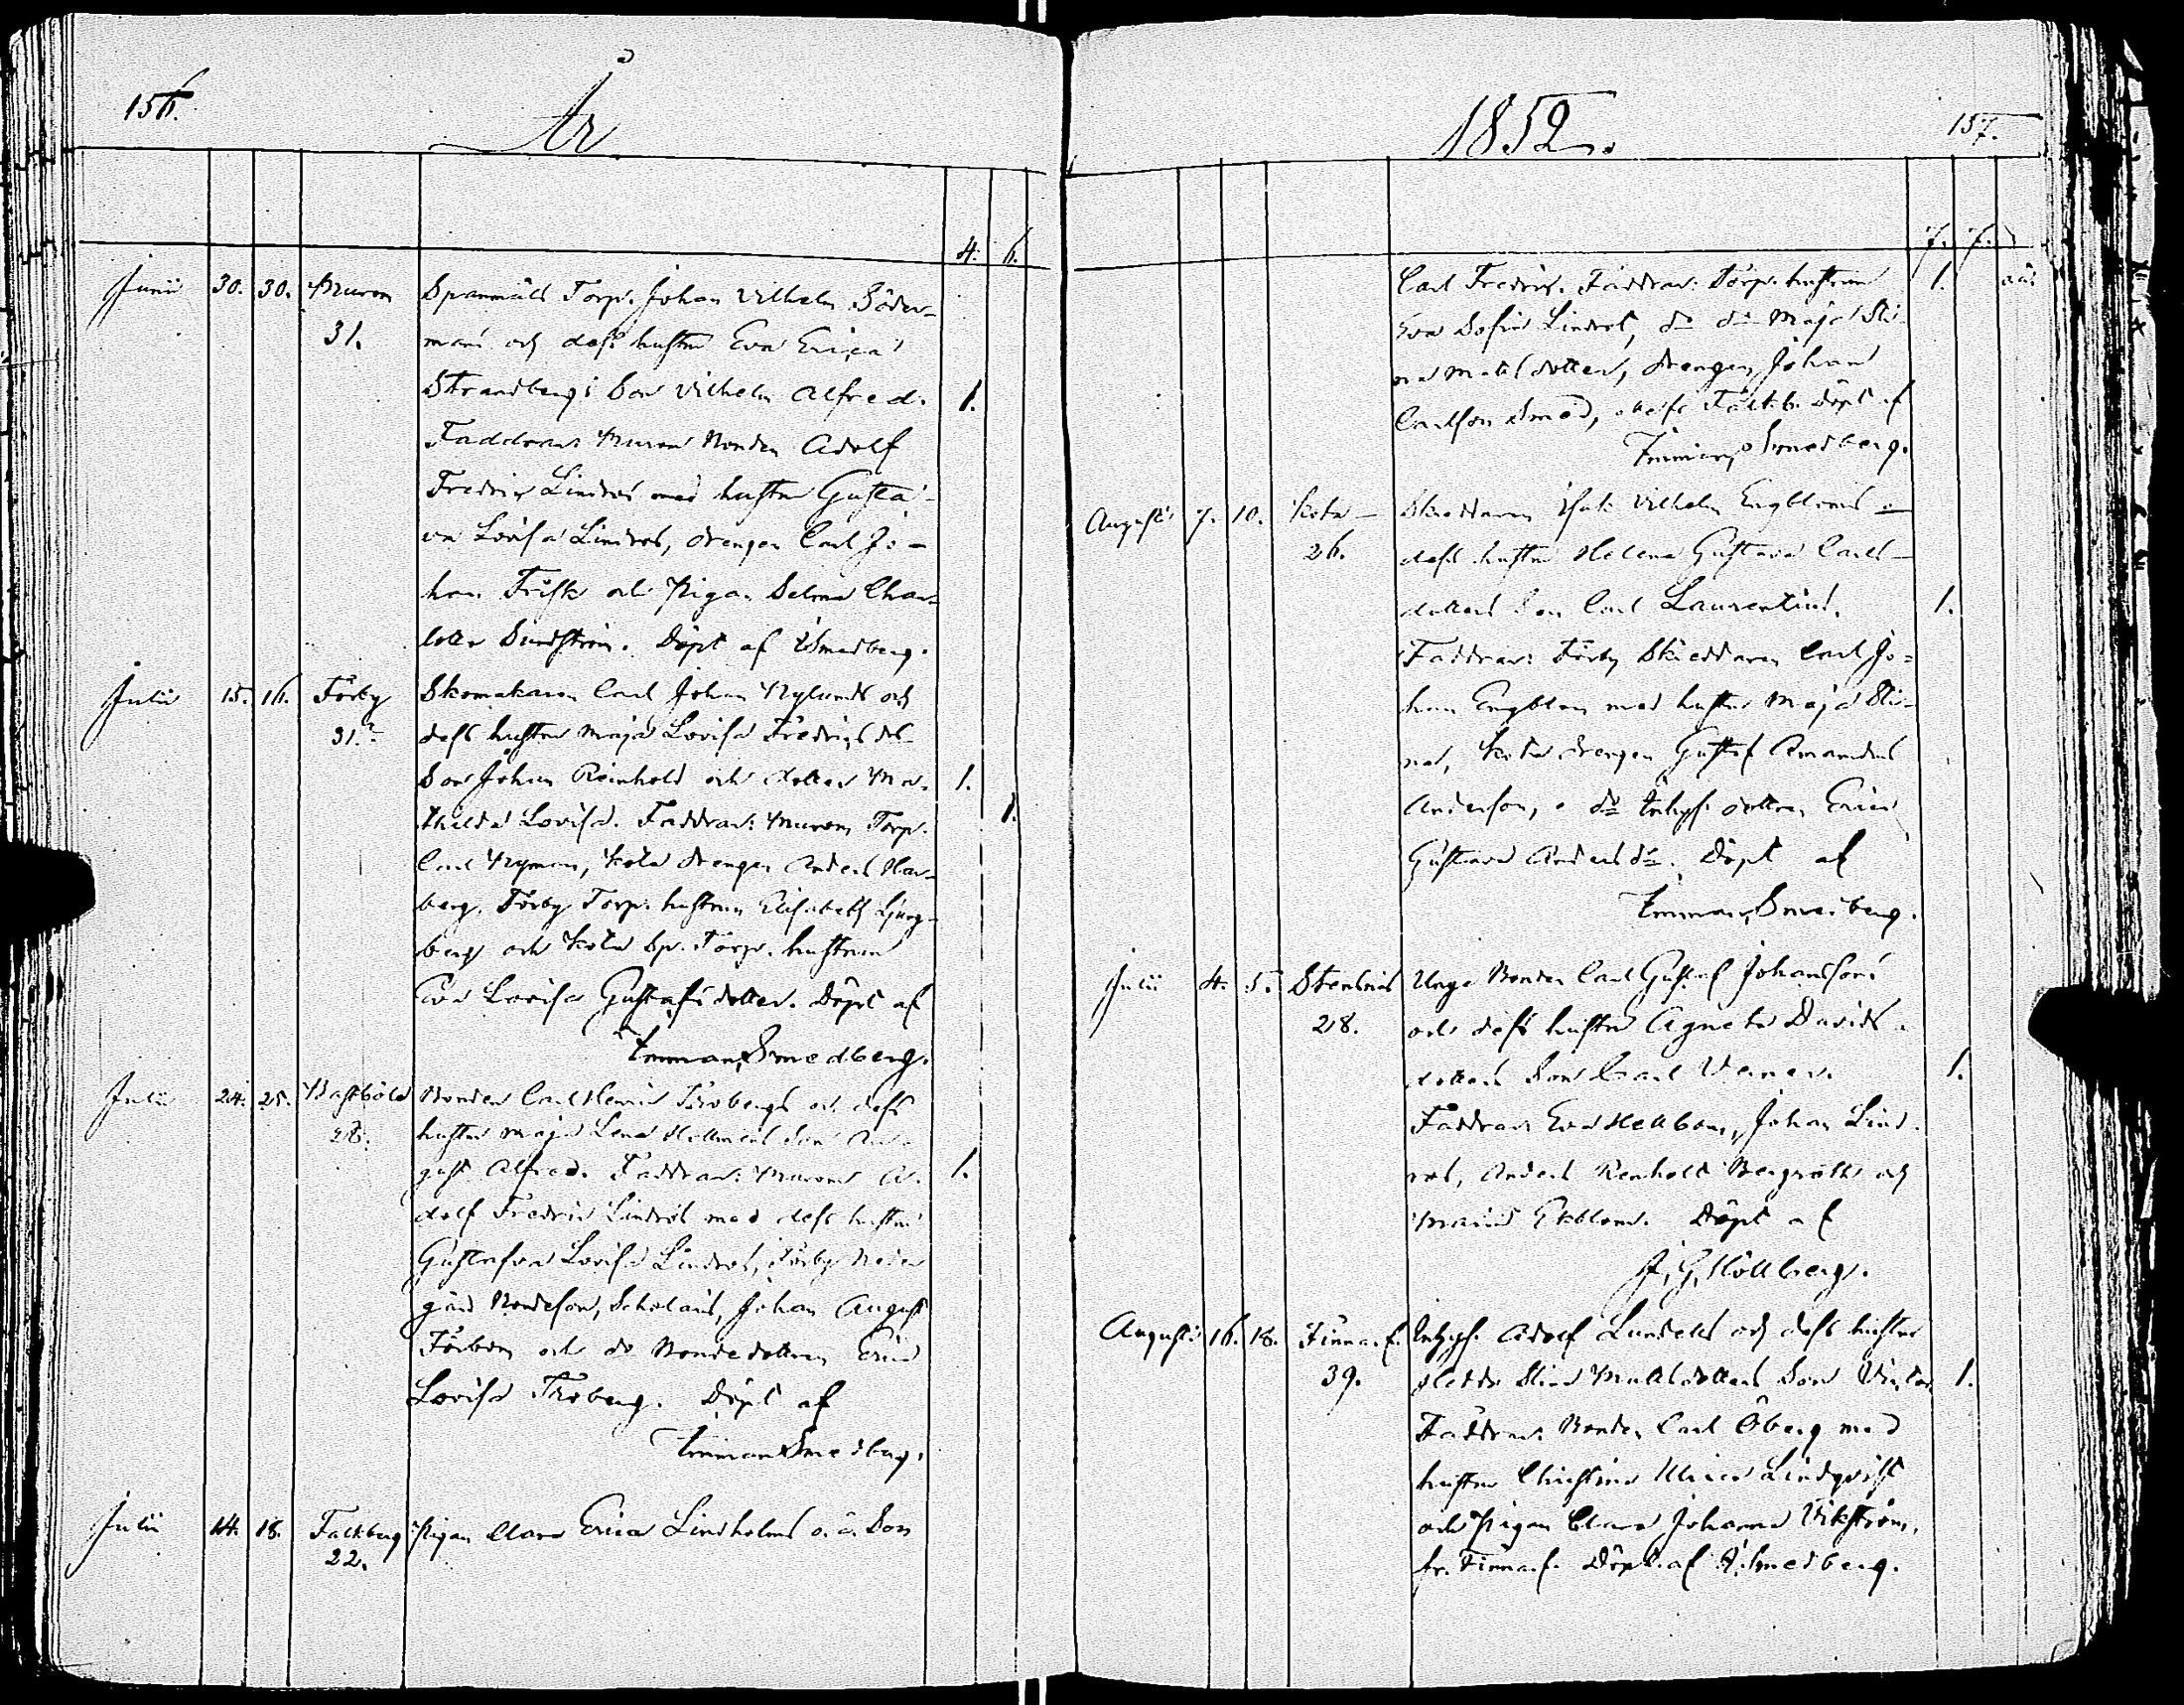 156.
År
4. 6.
Junii 30. 30. Murom Spanmåls Torp. Johan Vilhelm Söder-
31. mans och dess hustru Eva Erica
Strandbergs Son Vilhelm Alfred. 1.
Faddrar: Murom Bonden Adolf
Fredric Lindros med hustru Gusta-
va Lovisa Lindros, drengen Carl Jo-
han Frisk och Pigan Selma Char-
lotta Sundström. Döpt af Smedberg.
Julii 15. 16. Förby Skomakaren Carl Johan Nylunds och
31. dess hustru Maja Lovisa Fredricsdrs
Son Johan Reinhold och dotter Ma- 1.
thilda Lovisa. Faddrar: Murom Torp. 1.
Carl Nyman, Kola drengen Anders Har-
berg, Förby Torp. hustrun Elisabeth Ljung-
berg och Kola Sp. Torp. hustrun
Eva Lovisa Gustafsdotter. Döpt af
Emman. Smedberg.
Julii 24. 25. Bastböle Bonden Carl Henric Förbergs och dess
28. hustru Maja Lena Hellmens Son Au-
gust Alfred. Faddrar: Murom A- 1.
dolf Fredric Lindros med dess hustru
Gustafva Lovisa Lindros, Förby Neder
gård Bondeson, Scholaris, Johan August
Förbom och do Bondedottren Erica
Lovisa Förberg. Döpt af
Emman Smedberg.
Julii 14. 18. Falkberg Pigan Clara Erica Lindholms o. ä. Son
22.
1852.
157.
7. 7.
Carl Fredric. Faddrar: Torp. hustrun 1.
Eva Sofia Lindros, do do Maja Sti-
na Matsdotter, drengen Johan
Carlson Smed, Falkb. Döpt af
Emman. Smedberg.
Augusti 7. 10. Kola Skeddaren Isak Vilhelm Engbloms o
26. dess hustru Helena Gustava Carls-
dotters Son Carl Laurentius. 1.
Faddrar: Förby Skeddaren Carl Jo-
han Engblom med hustru Maja Sti-
na, Kola drengen Gustaf Amandus
Anderson, o do Inhyss dottren Erica
Gustava Andersdr. Döpt af
Emman. Smedberg.
Julii 4. 5. Stensnäs Unge Bonden Carl Gustaf Johanssons
28. och dess hustru Agneta Davids-
dotters Son Carl Verner. 1.
Faddrar: Eva Hellbom, Johan Lind-
ros, Anders Renholt Bergroth och
Maria Ekblom. Döpt af
J. G. Höckberg.
Augusti 16. 18. Finnar. Inhyss. Adolf Lundells och dess hustru
39. Hedda Stina Mattsdotters Son Victor 1.
Faddrar: Bonden Carl Öberg med
hustru Christina Ulrica Lindqvist
och Pigan Clara Johanna Vikström,
fr. Finnar. Döpt af E. Smedberg.